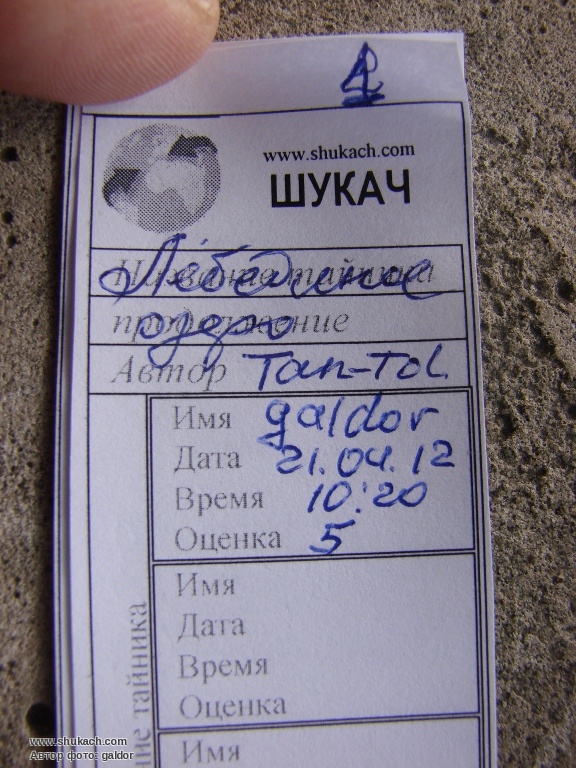 1
www.shukach.com
ШУКАЧ
Название тайника
Лебединое
продолжение
озеро
Автор Tan-Tol
Имя galdor
Дата 21.04.12
Время 10:20
Оценка 5
Имя
Дата
Время
Оценка
Имя
ние тайника
www.shukach.com
Автор фото: galdor